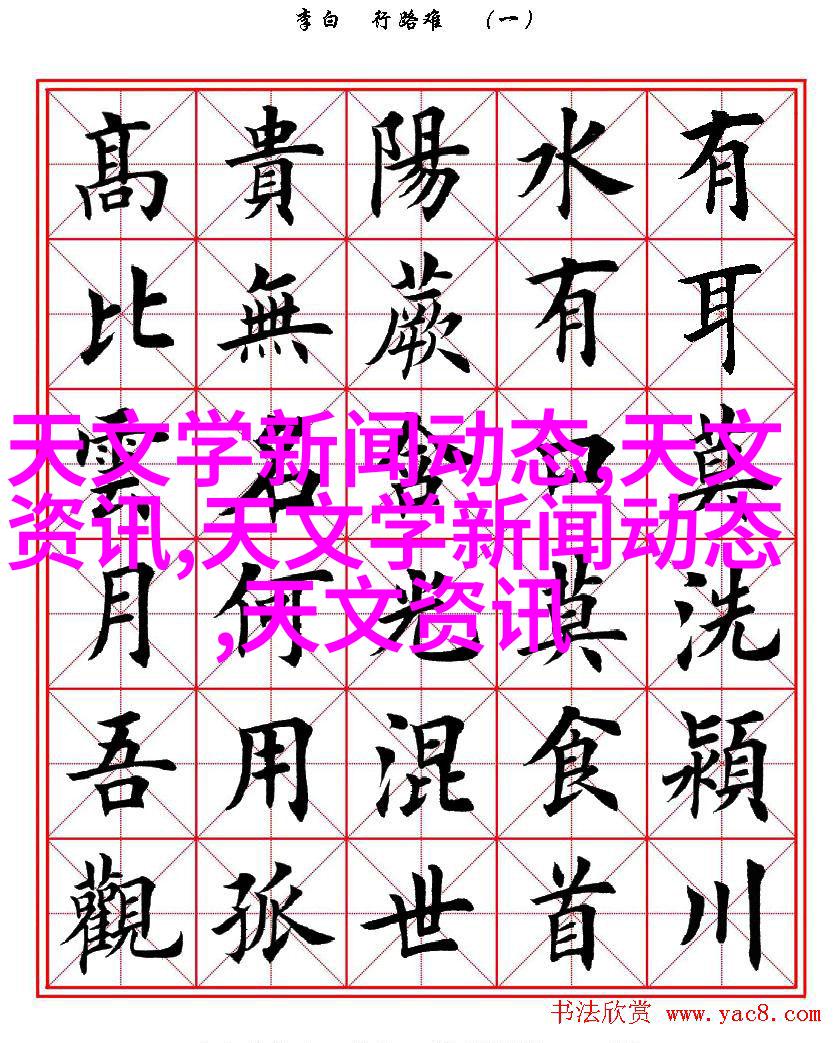 李白 行路难 （一）
有耳莫洗潁川
水有口莫食首
陽蕨含光混世
貴無名何用孤
髙比雲月吾觀
天文学新闻动态,天文
资讯,天文学新闻动态
,天文资讯
书法欣赏 www.yac8.com